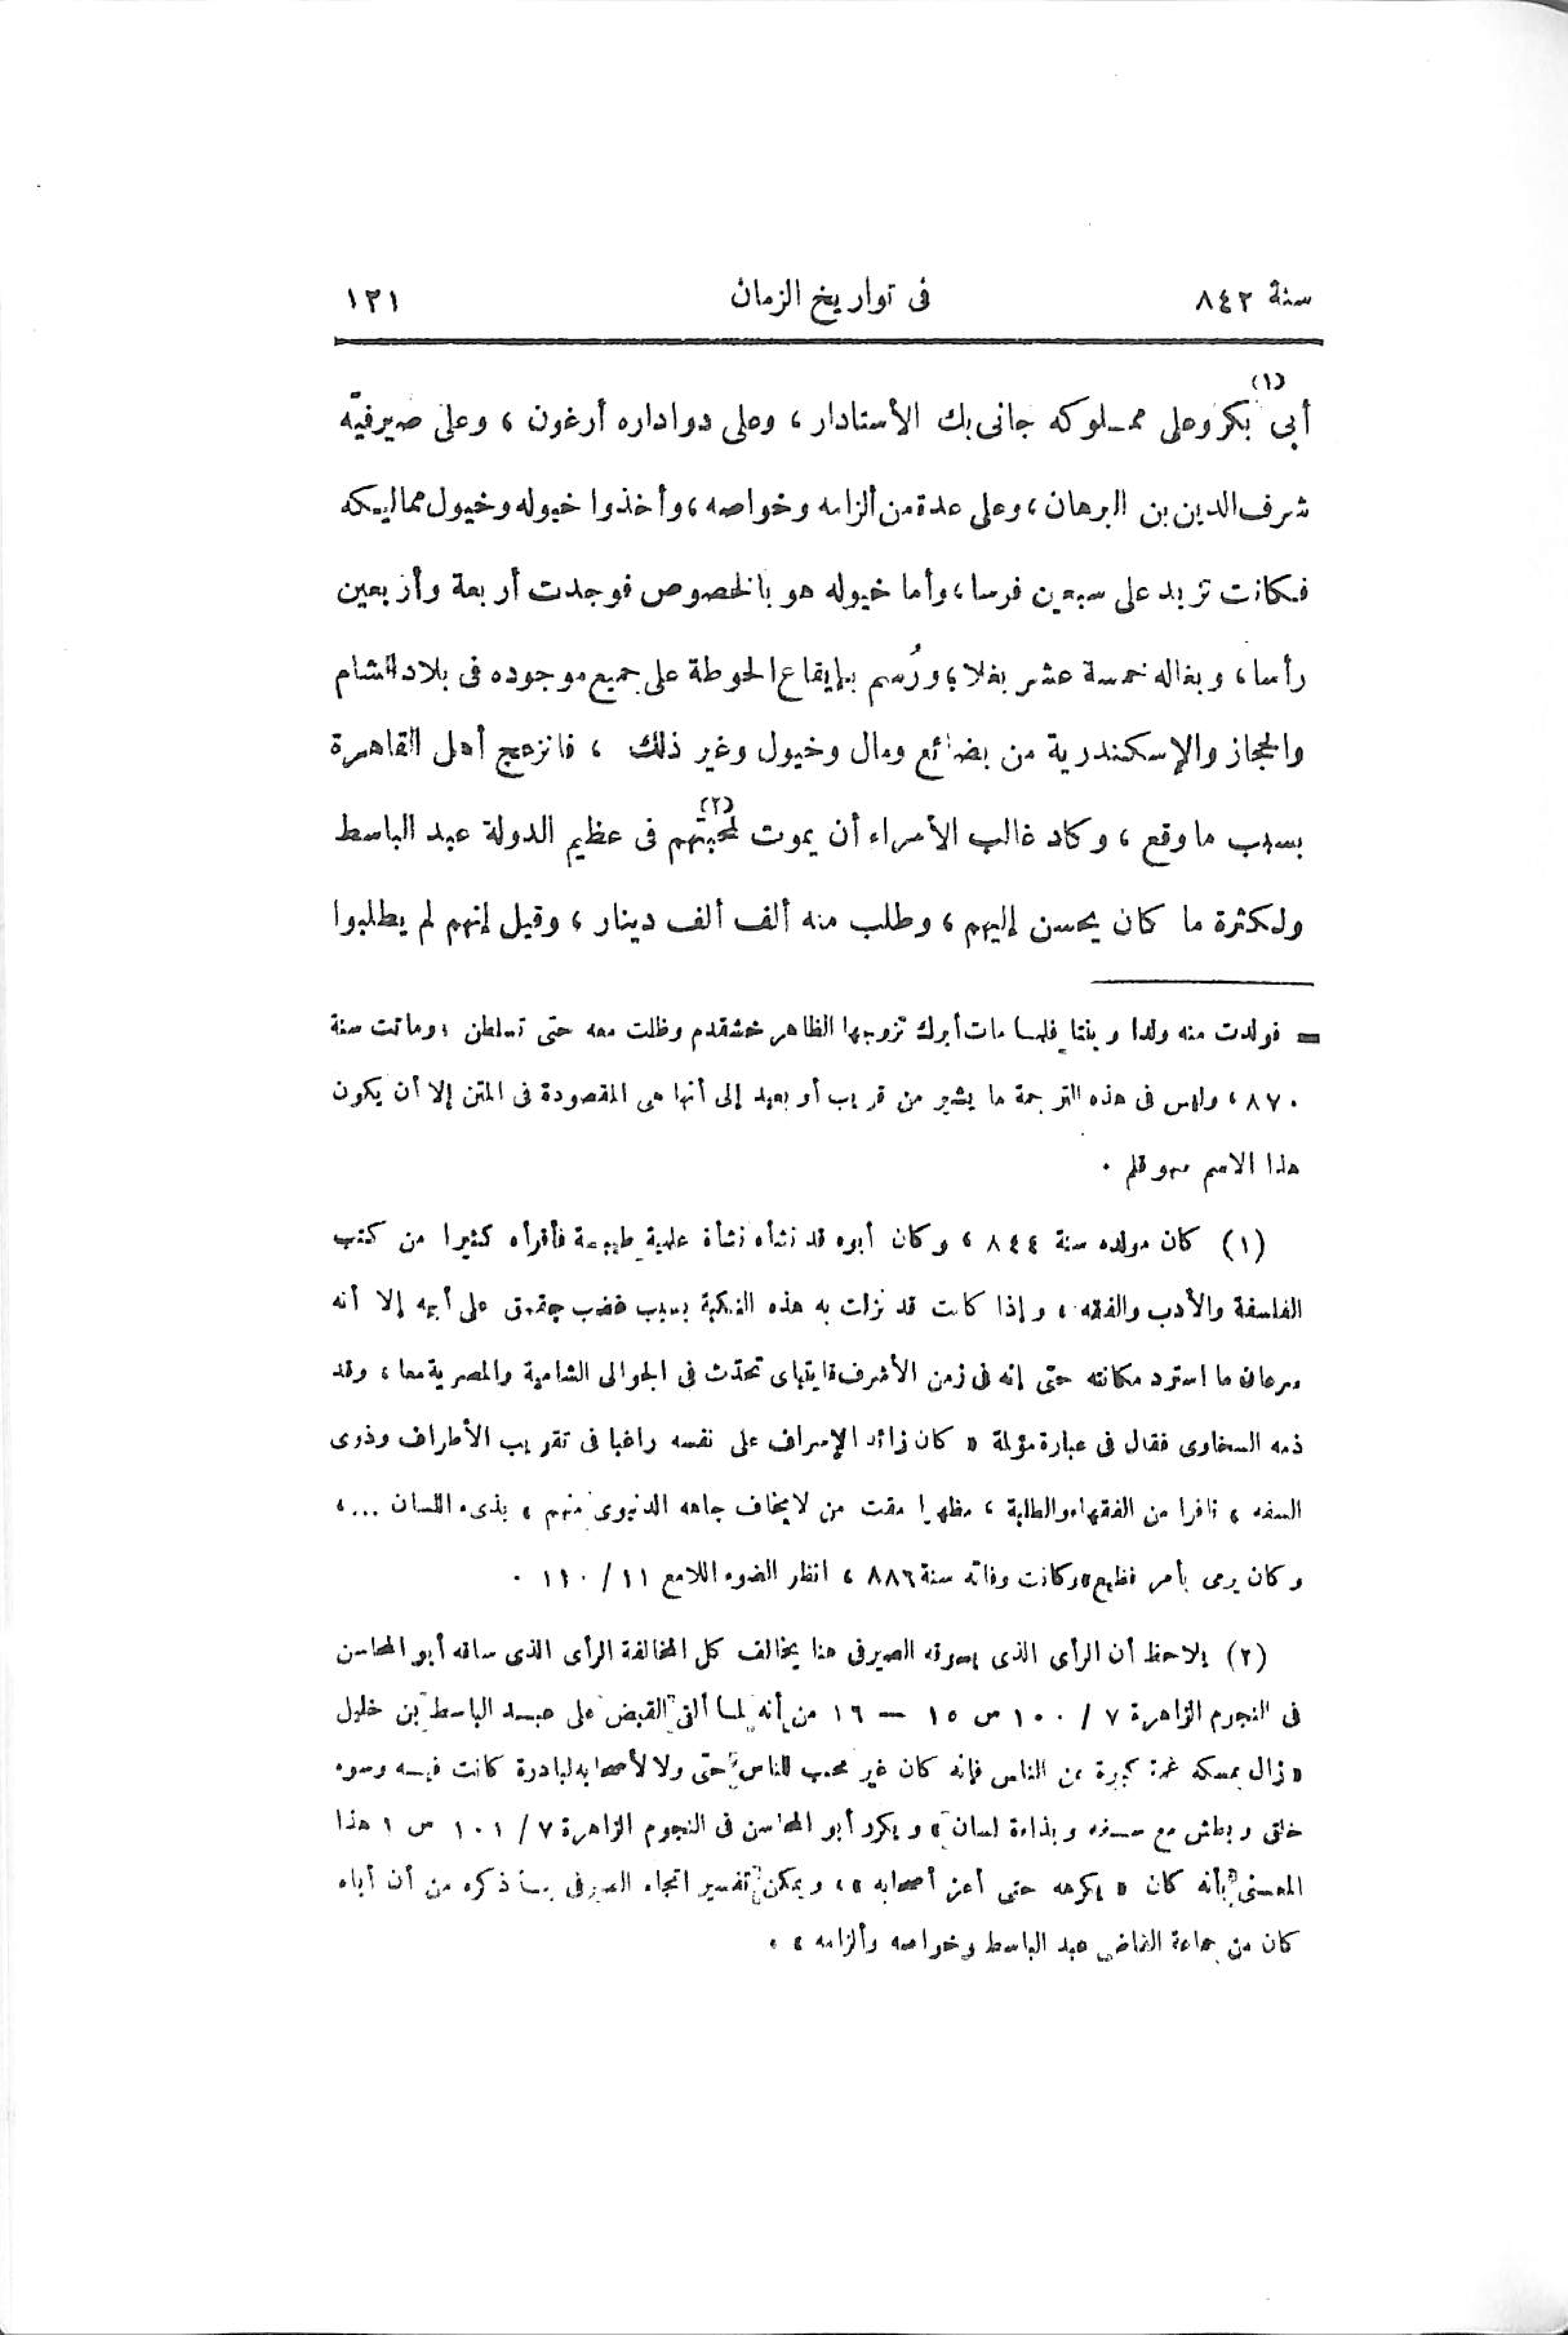 سنة ٨٤٢ فى تواريخ الزمان ١٢١
أبى (١) بكر وعلى مملوكه جانى بك الأستادار ، وعلى دواداره أرغون ، وعلى صيرفيّه
شرف الدين بن البرهان ، وعلى عدة من ألزامه وخواصه ، وأخذوا خيوله وخيول مماليكه
فكانت تزيد على سبعين فرسا ، وأما خيوله هو بالخصوص فوجدت أربعة وأربعين
رأسا ، وبغاله خمسة عشر بغلا ؛ ورُسم بإيقاع الحوطة على جميع موجوده فى بلاد الشام
والحجاز والإسكندرية من بضائع ومال وخيول وغير ذلك ، فانزعج أهل القاهرة
بسبب ما وقع ، وكاد غالب الأمراء أن يموت لمحبتهم (٢) فى عظيم الدولة عبد الباسط
ولكثرة ما كان يحسن إليهم ، وطلب منه ألف ألف دينار ، وقيل إنهم لم يطلبوا
= فولدت منه ولدا وبنتا فلما مات أبرك تزوجها الظاهر خشقدم وظلت معه حتى تسلطن ، وماتت سنة
٨٧٠ ، وليس فى هذه الترجمة ما يشير من قريب أو بعيد إلى أنها هى المقصودة فى المتن إلا أن يكون
هذا الاسم سهو قلم .
(١) كان مولده سنة ٨٤٤ ، وكان أبوه قد نشأه نشأة علمية طيبة فأقرأه كثيرا من كتب
الفلسفة والأدب والفقه ، وإذا كانت قد نزلت به هذه النكبة بسبب غضب جقمق على أبيه إلا أنه
سرعان ما استرد مكانته حتى إنه فى زمن الأشرف قايتباى تحدّث فى الجوالى الشامية والمصرية معا ، وقد
ذمه السخاوى فقال فى عبارة مؤلمة « كان زائد الإسراف على نفسه راغبا فى تقريب الأطراف وذوى
السفه ، نافرا من الفقهاء والطلبة ، مظهرا مقت من لا يخاف جاهه الدنيوى منهم ، بذىء اللسان ... ،
وكان يرمى بأمر فظيع » وكانت وفاته سنة ٨٨٦ ، انظر الضوء اللامع ١١ / ١١٠ .
(٢) يلاحظ أن الرأى الذى يسوقه الصيرفى هنا يخالف كل المخالفة الرأى الذى ساقه أبو المحاسن
فى النجوم الزاهرة ٧ / ١٠٠ س ١٥ — ١٦ من أنه لما ألقى القبض على عبد الباسط بن خليل
« زال بمسكه غمة كبيرة عن الناس فإنه كان غير محبب للناس حتى ولا لأصحابه لبادرة كانت فيه وسوء
خلق وبطش مع سفه وبذاءة لسان » ويكرر أبو المحاسن فى النجوم الزاهرة ٧ / ١٠١ س ١ هذا
المعنى بأنه كان « يكرهه حتى أعز أصحابه » ، ويمكن تفسير اتجاه الصيرفى بما ذكره من أن أباه
كان من جماعة القاضى عبد الباسط وخواصه وألزامه » .